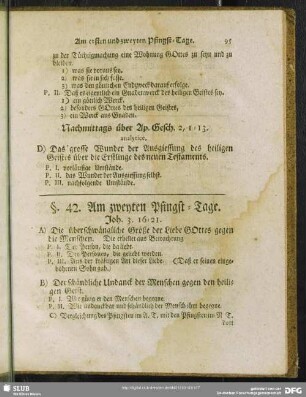 Am ersten und zweyten Pfingst-Tage. 95
zu der Tüchtigmachung eine Wohnung GOttes zu seyn und zu
bleiben.
1) was sie voraus setze,
2) was sie in sich fasse,
3) was den gänzlichen
P. II. Daß es eigentlich ein Gnadenwerck des heiligen Geistes sey.
1) ein göttlich Werck,
2) besonders GOttes des heiligen Geistes,
3) ein Werck aus Gnaden.
Nachmittags über Ap. Gesch. 2, 1-13.
D) Das grosse Wunder der Ausgiessung des heiligen
Geistes über die Erstlinge des neuen Testaments.
P. I. vorläufige Umstände.
P. II. das Wunder der Ausgiessung selbst.
P. III. nachfolgende Umstände.
§. 42. Am zweyten Pfingst-Tage.
Joh. 3. 16-21.
A) Die überschwängliche Größe der Liebe GOttes gegen
die Menschen. Die erhellet aus Betrachtung
P. I. Der Person, die da liebt.
P. II. Der Personen, die geliebt werden.
P. III. Der Art dieser Liebe. (Daß er seinen einge-
bohrnen Sohn gab.)
B) Der schändliche Undanck der Menschen gegen den heili-
gen Geist.
P. I. den Menschen begegne.
P. II. Wie undanckbar und schändlich der Menschen ihm begegne.
C) Vergleichung des Pfingsttes im A. T. mit dem Pfingsttes im N. T.
SLUB